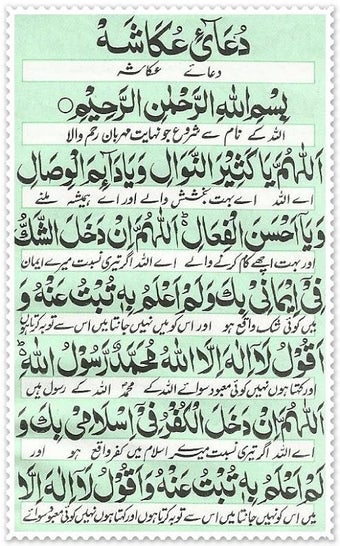 دُعَائِ عُكَاشَہْ
دعائے عکاشہ
بِسْمِ اللهِ الرَّحْمٰنِ الرَّحِيْمِ○
اللہ کے نام سے شروع جو نہایت مہربان رحم والا
اَللّٰهُمَّ يَا كَثِيْرَ النَّوَالِ وَيَا دَآئِمَ الْوِصَالِ
اے اللہ اے بہت بخشش والے اور اے ہمیشہ ملنے
وَيَآ اَحْسَنَ الْفِعَالِ ؕ اَللّٰهُمَّ اِنْ دَخَلَ الشَّكُّ
اور بہت اچھے کام کرنے والے اے اللہ اگر تیری نسبت میرے ایمان
فِيْ اِيْمَانِيْ بِكَ وَلَمْ اَعْلَمْ بِهٖ تُبْتُ عَنْهُ وَ
میں کوئی شک واقع ہو اور اس کو میں نہیں جانتا میں اس سے توبہ کرتا ہوں
اَقُوْلُ لَآ اِلٰهَ اِلَّا اللهُ مُحَمَّدٌ رَّسُوْلُ اللهِ ؕ
اور کہتا ہوں نہیں کوئی معبود سوائے اللہ کے محمدؐ اللہ کے رسول ہیں
اَللّٰهُمَّ اِنْ دَخَلَ الْكُفْرُ فِيْ اِسْلَامِيْ بِكَ وَ
اے اللہ اگر تیری نسبت میرے اسلام میں کفر واقع ہو اور
لَمْ اَعْلَمْ بِهٖ تُبْتُ عَنْهُ وَ اَقُوْلُ لَآ اِلٰهَ اِلَّا
میں اس کو نہیں جانتا میں اس سے توبہ کرتا ہوں اور کہتا ہوں نہیں کوئی معبود سوائے